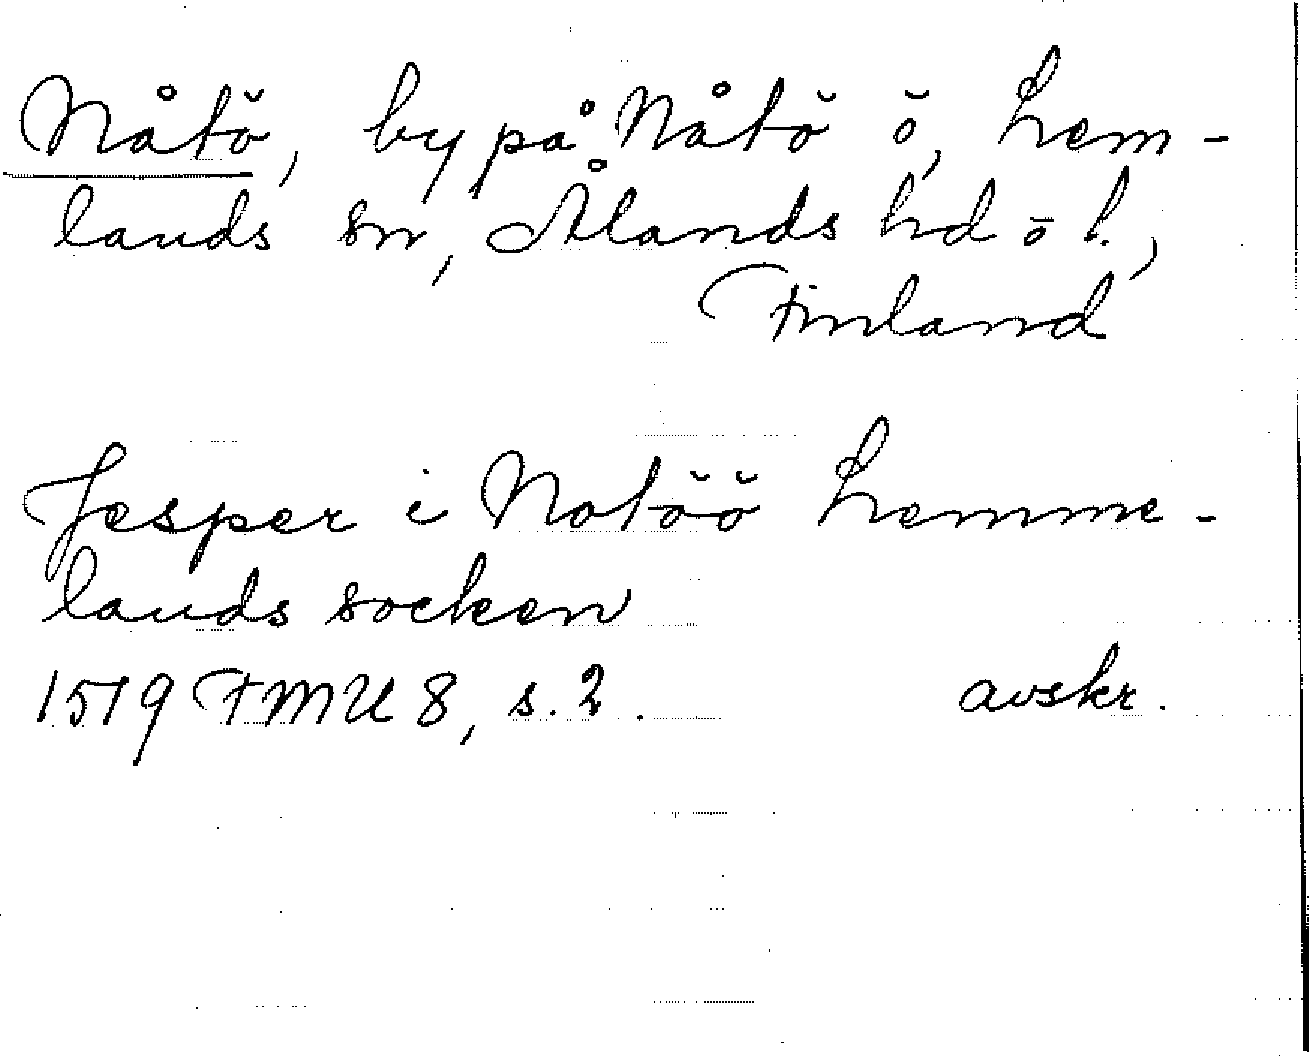 Nåtö, by på Nåtö ö, Lem-
lands sn, Ålands hd o l.,
Finland
Jesper i Notöö Lemme-
lands socken
1519 FMU 8, s. 2. avskr.